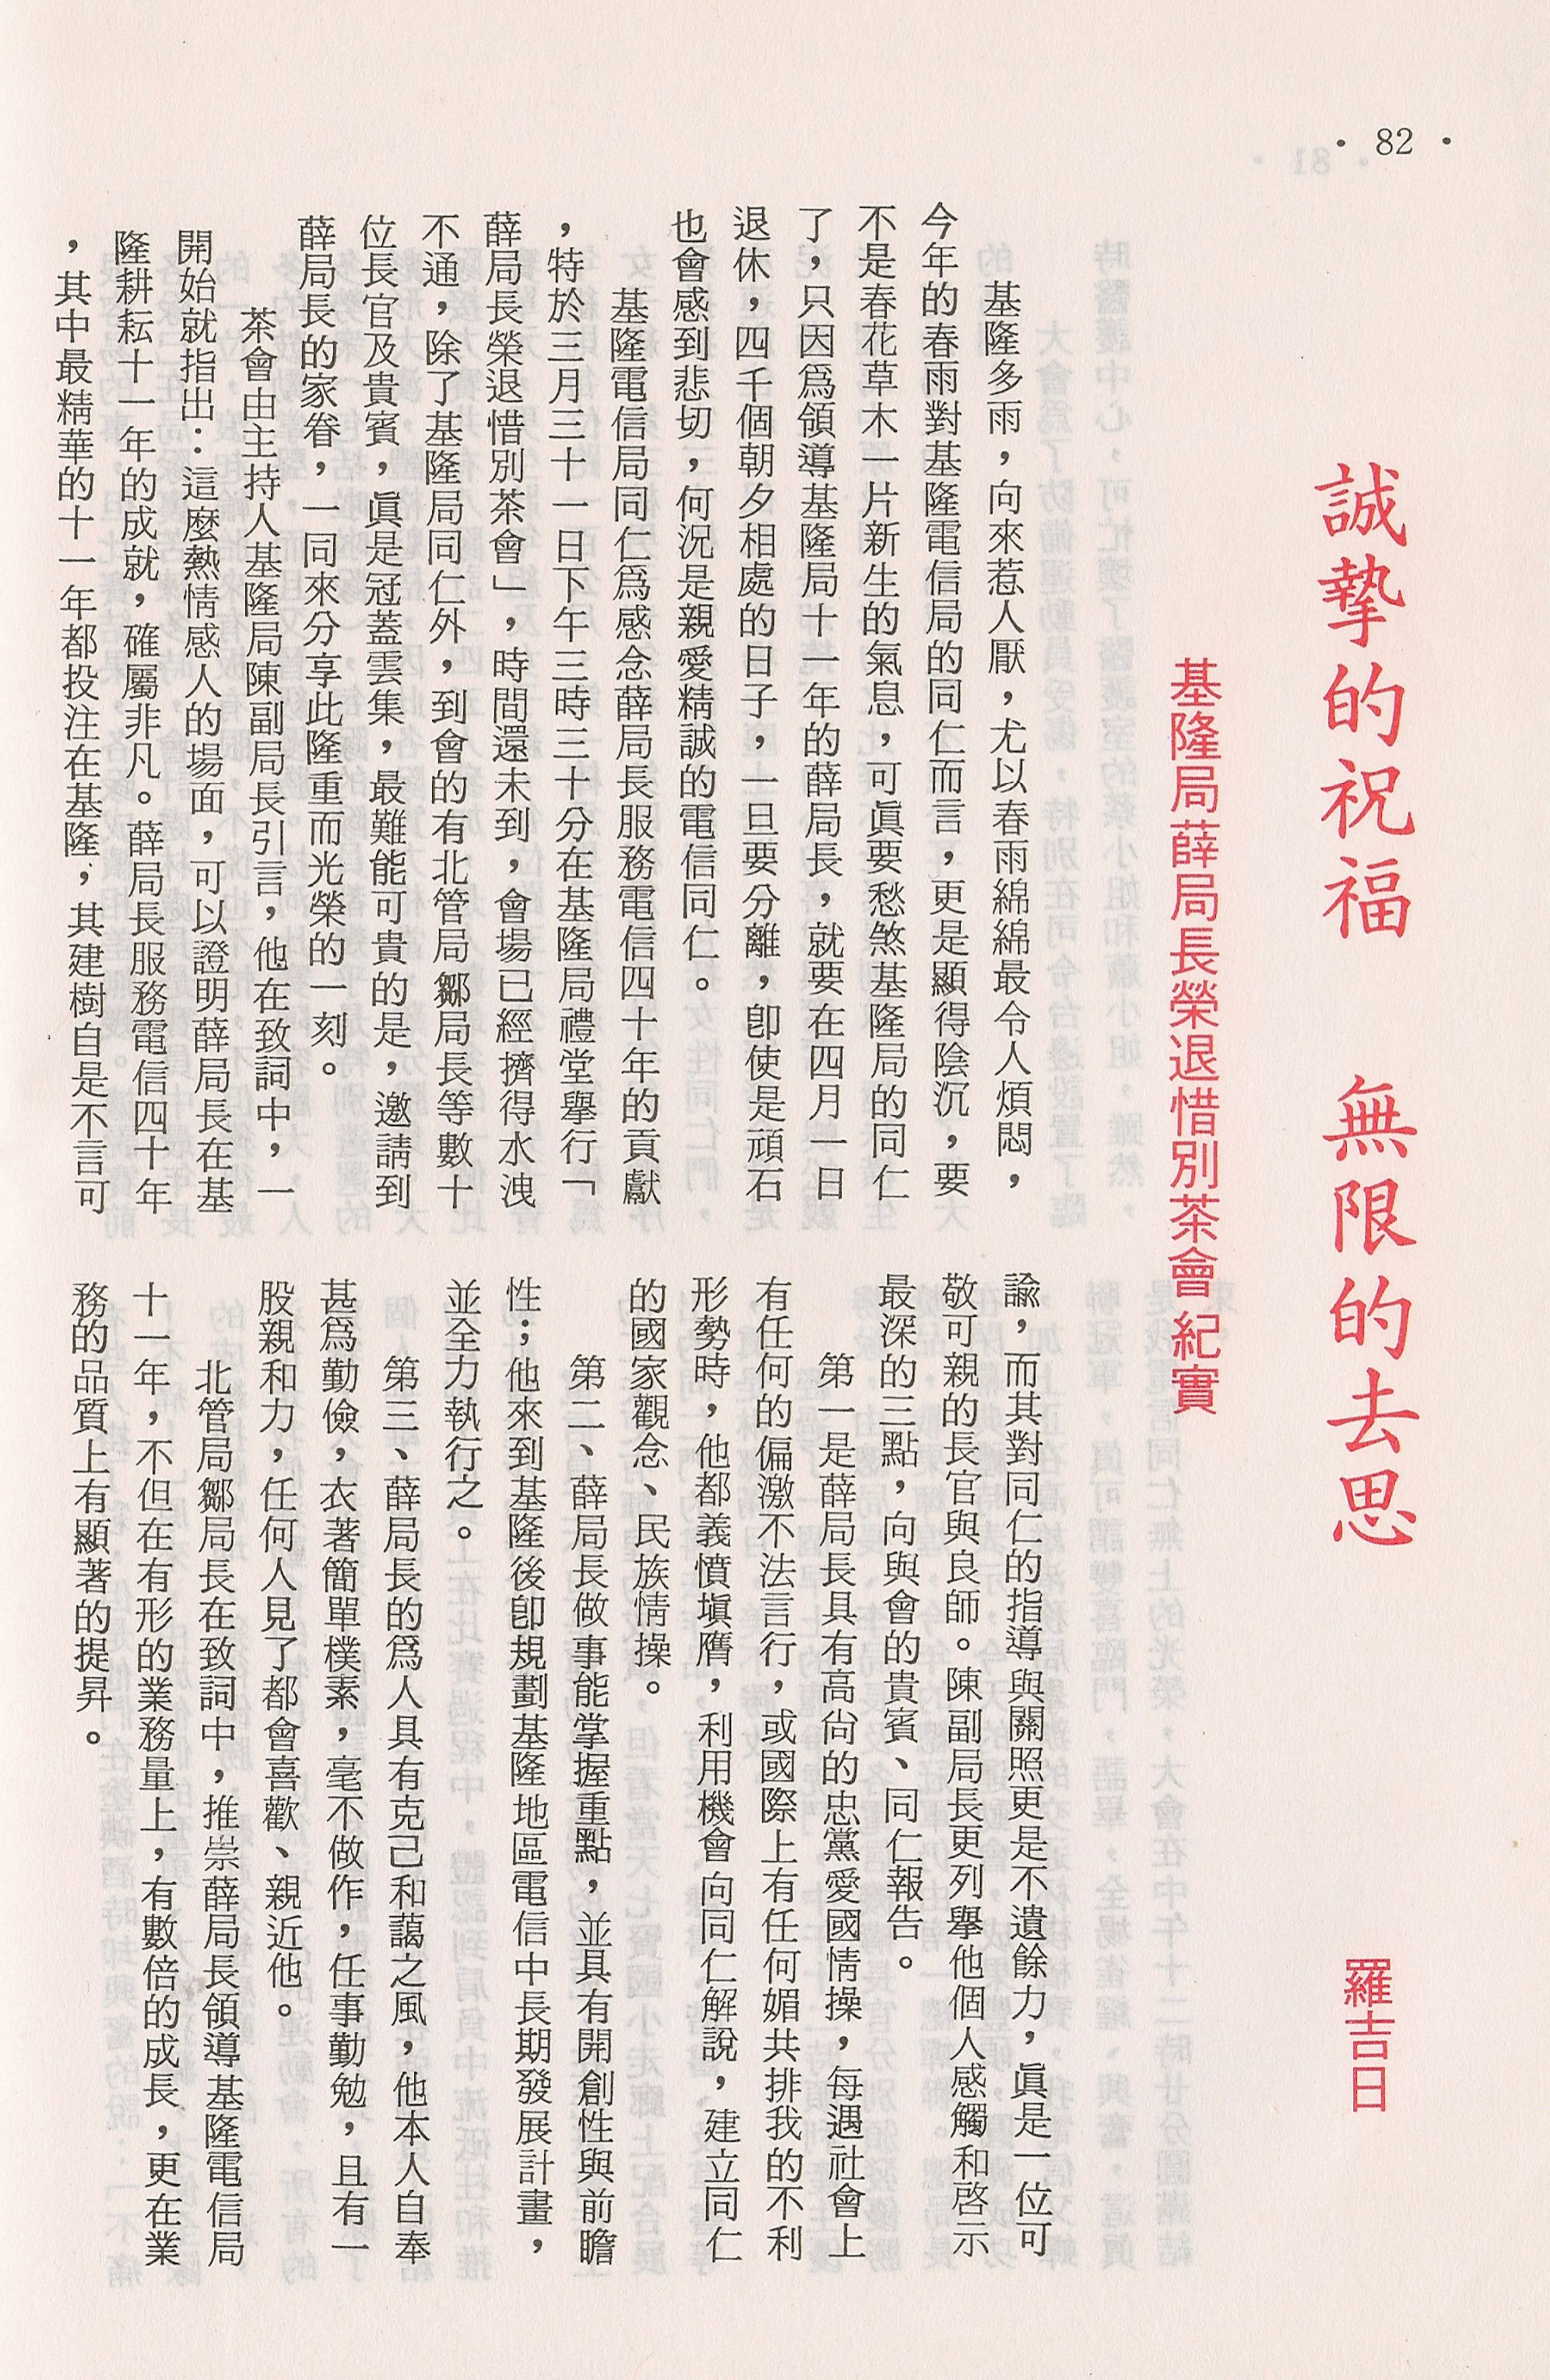 • 82 •
誠摯的祝福 無限的去思
羅吉日
基隆局薛局長榮退惜別茶會紀實
基隆多雨，向來惹人厭，尤以春雨綿綿最令人煩悶，
今年的春雨對基隆電信局的同仁而言，更是顯得陰沉，要
不是春花草木一片新生的氣息，可眞要愁煞基隆局的同仁
了，只因爲領導基隆局十一年的薛局長，就要在四月一日
退休，四千個朝夕相處的日子，一旦要分離，卽使是頑石
也會感到悲切，何況是親愛精誠的電信同仁。
基隆電信局同仁爲感念薛局長服務電信四十年的貢獻
，特於三月三十一日下午三時三十分在基隆局禮堂舉行「
薛局長榮退惜別茶會」，時間還未到，會場已經擠得水洩
不通，除了基隆局同仁外，到會的有北管局鄒局長等數十
位長官及貴賓，眞是冠蓋雲集，最難能可貴的是，邀請到
薛局長的家眷，一同來分享此隆重而光榮的一刻。
茶會由主持人基隆局陳副局長引言，他在致詞中，一
開始就指出：這麼熱情感人的場面，可以證明薛局長在基
隆耕耘十一年的成就，確屬非凡。薛局長服務電信四十年
，其中最精華的十一年都投注在基隆，其建樹自是不言可
諭，而其對同仁的指導與關照更是不遺餘力，眞是一位可
敬可親的長官與良師。陳副局長更列舉他個人感觸和啓示
最深的三點，向與會的貴賓、同仁報告。
第一是薛局長具有高尙的忠黨愛國情操，每遇社會上
有任何的偏激不法言行，或國際上有任何媚共排我的不利
形勢時，他都義憤塡膺，利用機會向同仁解說，建立同仁
的國家觀念、民族情操。
第二、薛局長做事能掌握重點，並具有開創性與前瞻
性；他來到基隆後卽規劃基隆地區電信中長期發展計畫，
並全力執行之。
第三、薛局長的爲人具有克己和藹之風，他本人自奉
甚爲勤儉，衣著簡單樸素，毫不做作，任事勤勉，且有一
股親和力，任何人見了都會喜歡、親近他。
北管局鄒局長在致詞中，推崇薛局長領導基隆電信局
十一年，不但在有形的業務量上，有數倍的成長，更在業
務的品質上有顯著的提昇。